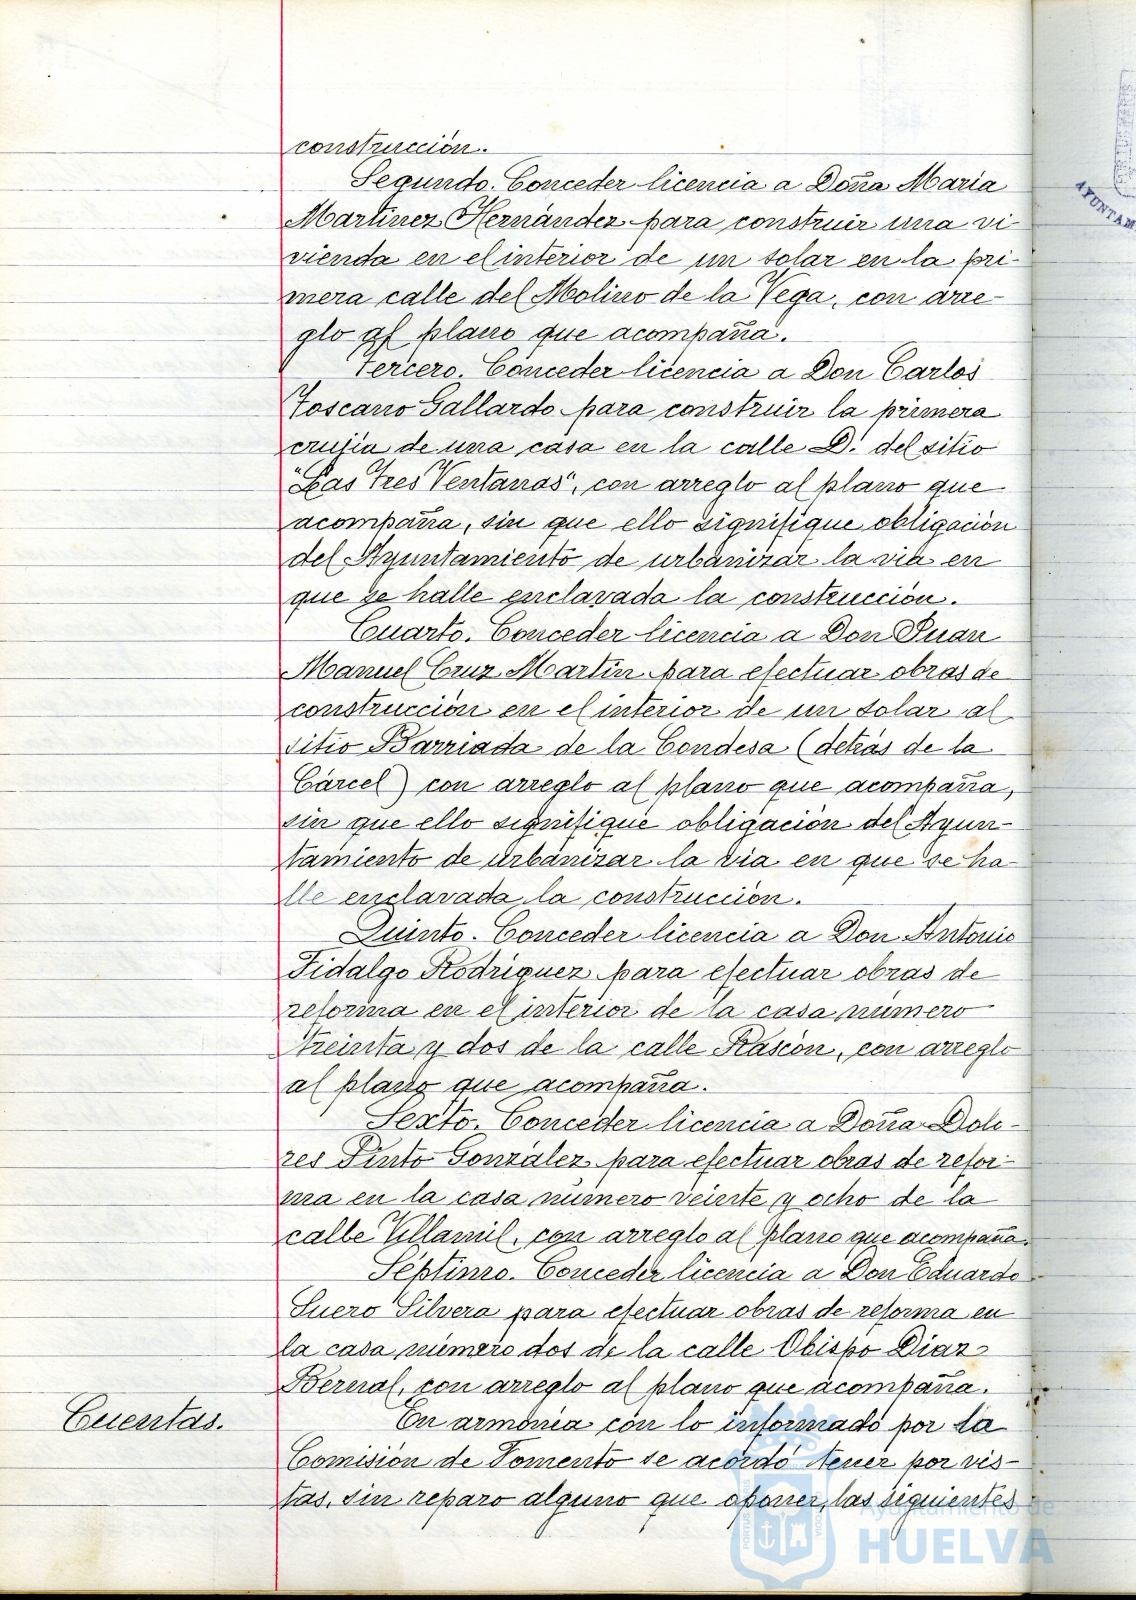 construcción.
Segundo. Conceder licencia a Doña Maria
Martinez Hernández para construir una vi
vienda en el interior de un solar en la pri-
mera calle del Molino de la Vega, con arre-
glo al plano que acompaña.
Tercero. Conceder licencia a Don Carlos
Toscano Gallardo para construir la primera
crujia de una casa en la calle D. del sitio
"Las Tres Ventanas", con arreglo al plano que
acompaña, sin que ello signifique obligación
del Ayuntamiento de urbanizar la via en
que se halle enclavada la construcción.
Cuarto. Conceder licencia a Don Juan
Manuel Cruz Martin para efectuar obras de
construcción en el interior de un solar al
sitio Barriada de la Condesa (detrás de la
Cárcel) con arreglo al plano que acompaña,
sin que ello signifique obligación del Ayun-
tamiento de urbanizar la via en que se ha-
lle enclavada la construcción.
Quinto. Conceder licencia a Don Antonio
Fidalgo Rodriguez para efectuar obras de
reforma en el interior de la casa número
treinta y dos de la calle Rascón, con arreglo
al plano que acompaña.
Sexto. Conceder licencia a Doña Dolo-
res Pinto González para efectuar obras de refor-
ma en la casa número veinte y ocho de la
calle Villamil, con arreglo al plano que acompaña.
Séptimo. Conceder licencia a Don Eduardo
Suero Silvera para efectuar obras de reforma en
la casa número dos de la calle Obispo Diaz
Bernal, con arreglo al plano que acompaña.
Cuentas.
En armonia con lo informado por la
Comisión de Fomento se acordó tener por vis-
tas, sin reparo alguno que oponer, las siguientes
Ayuntamiento de
HUELVA
AYUNTAM